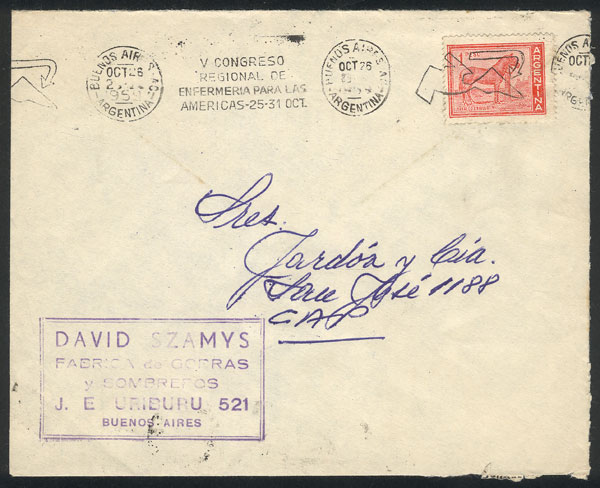 BUENOS AIRES
OCT 26
ARGENTINA
V CONGRESO
REGIONAL DE
ENFERMERIA PARA LAS
AMERICAS-25-31 OCT.
BUENOS AIRES
OCT 26
ARGENTINA
ARGENTINA
BUENOS
ARGEN
Sres.
Jardón y Cía.
San José 1188
CAP
DAVID SZAMYS
FABRICA de GORRAS
y SOMBREROS
J. E URIBURU 521
BUENOS AIRES